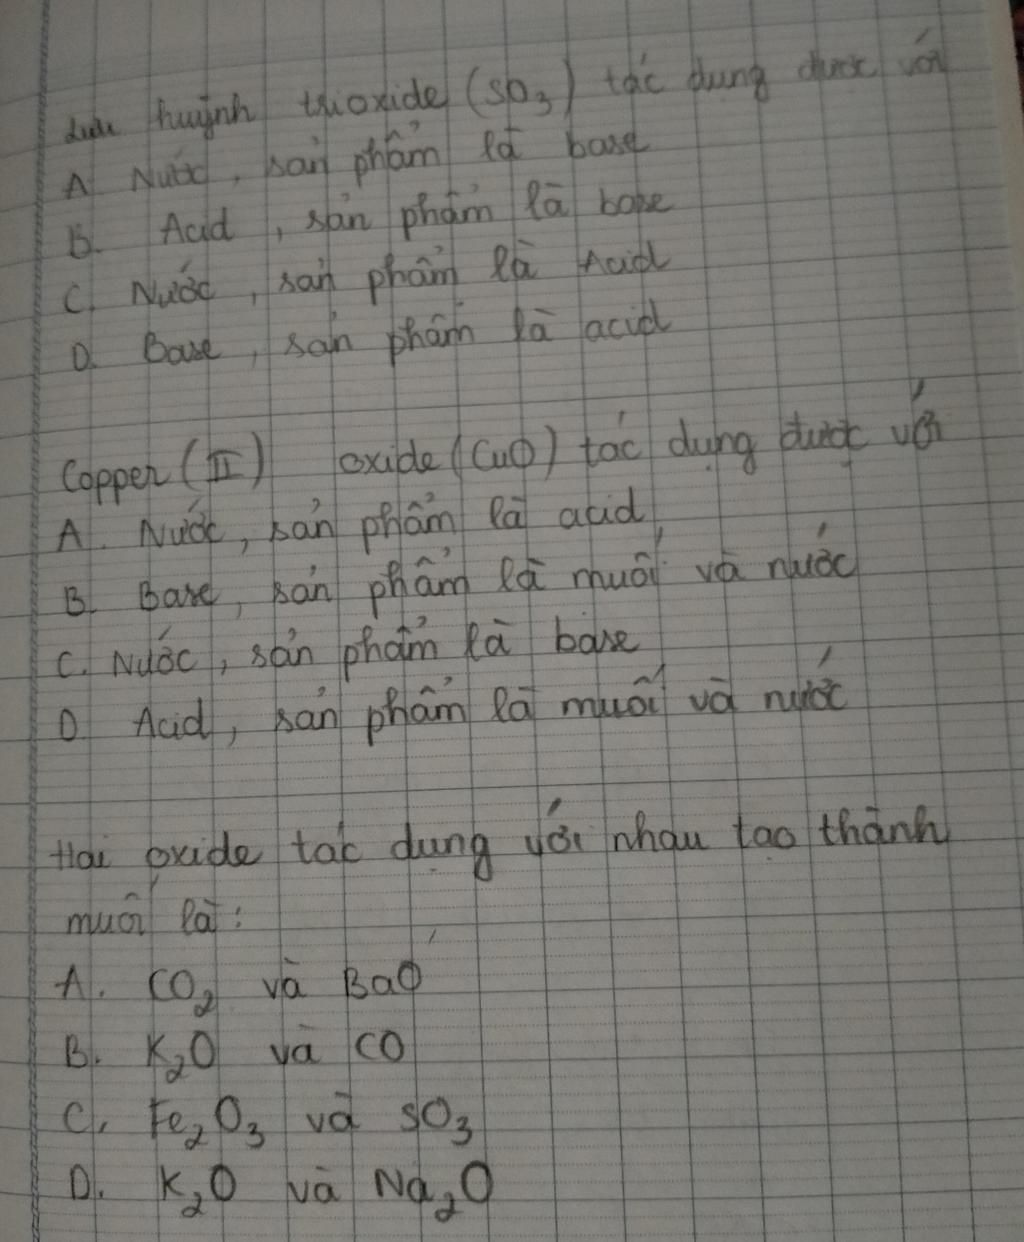 Lưu huỳnh trioxide (SO3) tác dụng được với
A Nước, sản phẩm là base
B. Acid, sản phẩm là base
C. Nước, sản phẩm là Acid
D. Base, sản phẩm là acid
Copper (II) oxide (CuO) tác dụng được với
A. Nước, sản phẩm là acid
B. Base, sản phẩm là muối và nước
C. Nước, sản phẩm là base
D. Acid, sản phẩm là muối và nước
Hai oxide tác dụng với nhau tạo thành
muối là:
A. CO2 và BaO
B. K2O và CO
C. Fe2O3 và SO3
D. K2O và Na2O